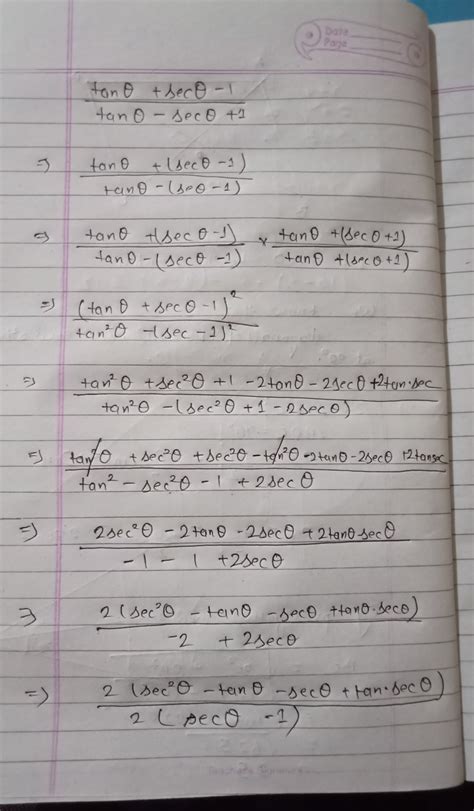 Date
Page
tanθ + secθ - 1 / tanθ - secθ + 1
⇒ tanθ + (secθ - 1) / tanθ - (seθ - 1)
⇒ tanθ + (secθ - 1) / tanθ - (secθ - 1) × tanθ + (secθ + 1) / tanθ + (secθ + 1)
⇒ (tanθ + secθ - 1)² / tan²θ - (sec - 1)²
⇒ tan²θ + sec²θ + 1 - 2tanθ - 2secθ + 2tan·sec / tan²θ - (sec²θ + 1 - 2secθ)
⇒ tan²θ + sec²θ + sec²θ - tan²θ - 2tanθ - 2secθ + 2tansec / tan² - sec²θ - 1 + 2secθ
⇒ 2sec²θ - 2tanθ - 2secθ + 2tanθ·secθ / -1 - 1 + 2secθ
⇒ 2(sec²θ - tanθ - secθ + tanθ·secθ) / -2 + 2secθ
⇒ 2(sec²θ - tanθ - secθ + tan·secθ) / 2(secθ - 1)